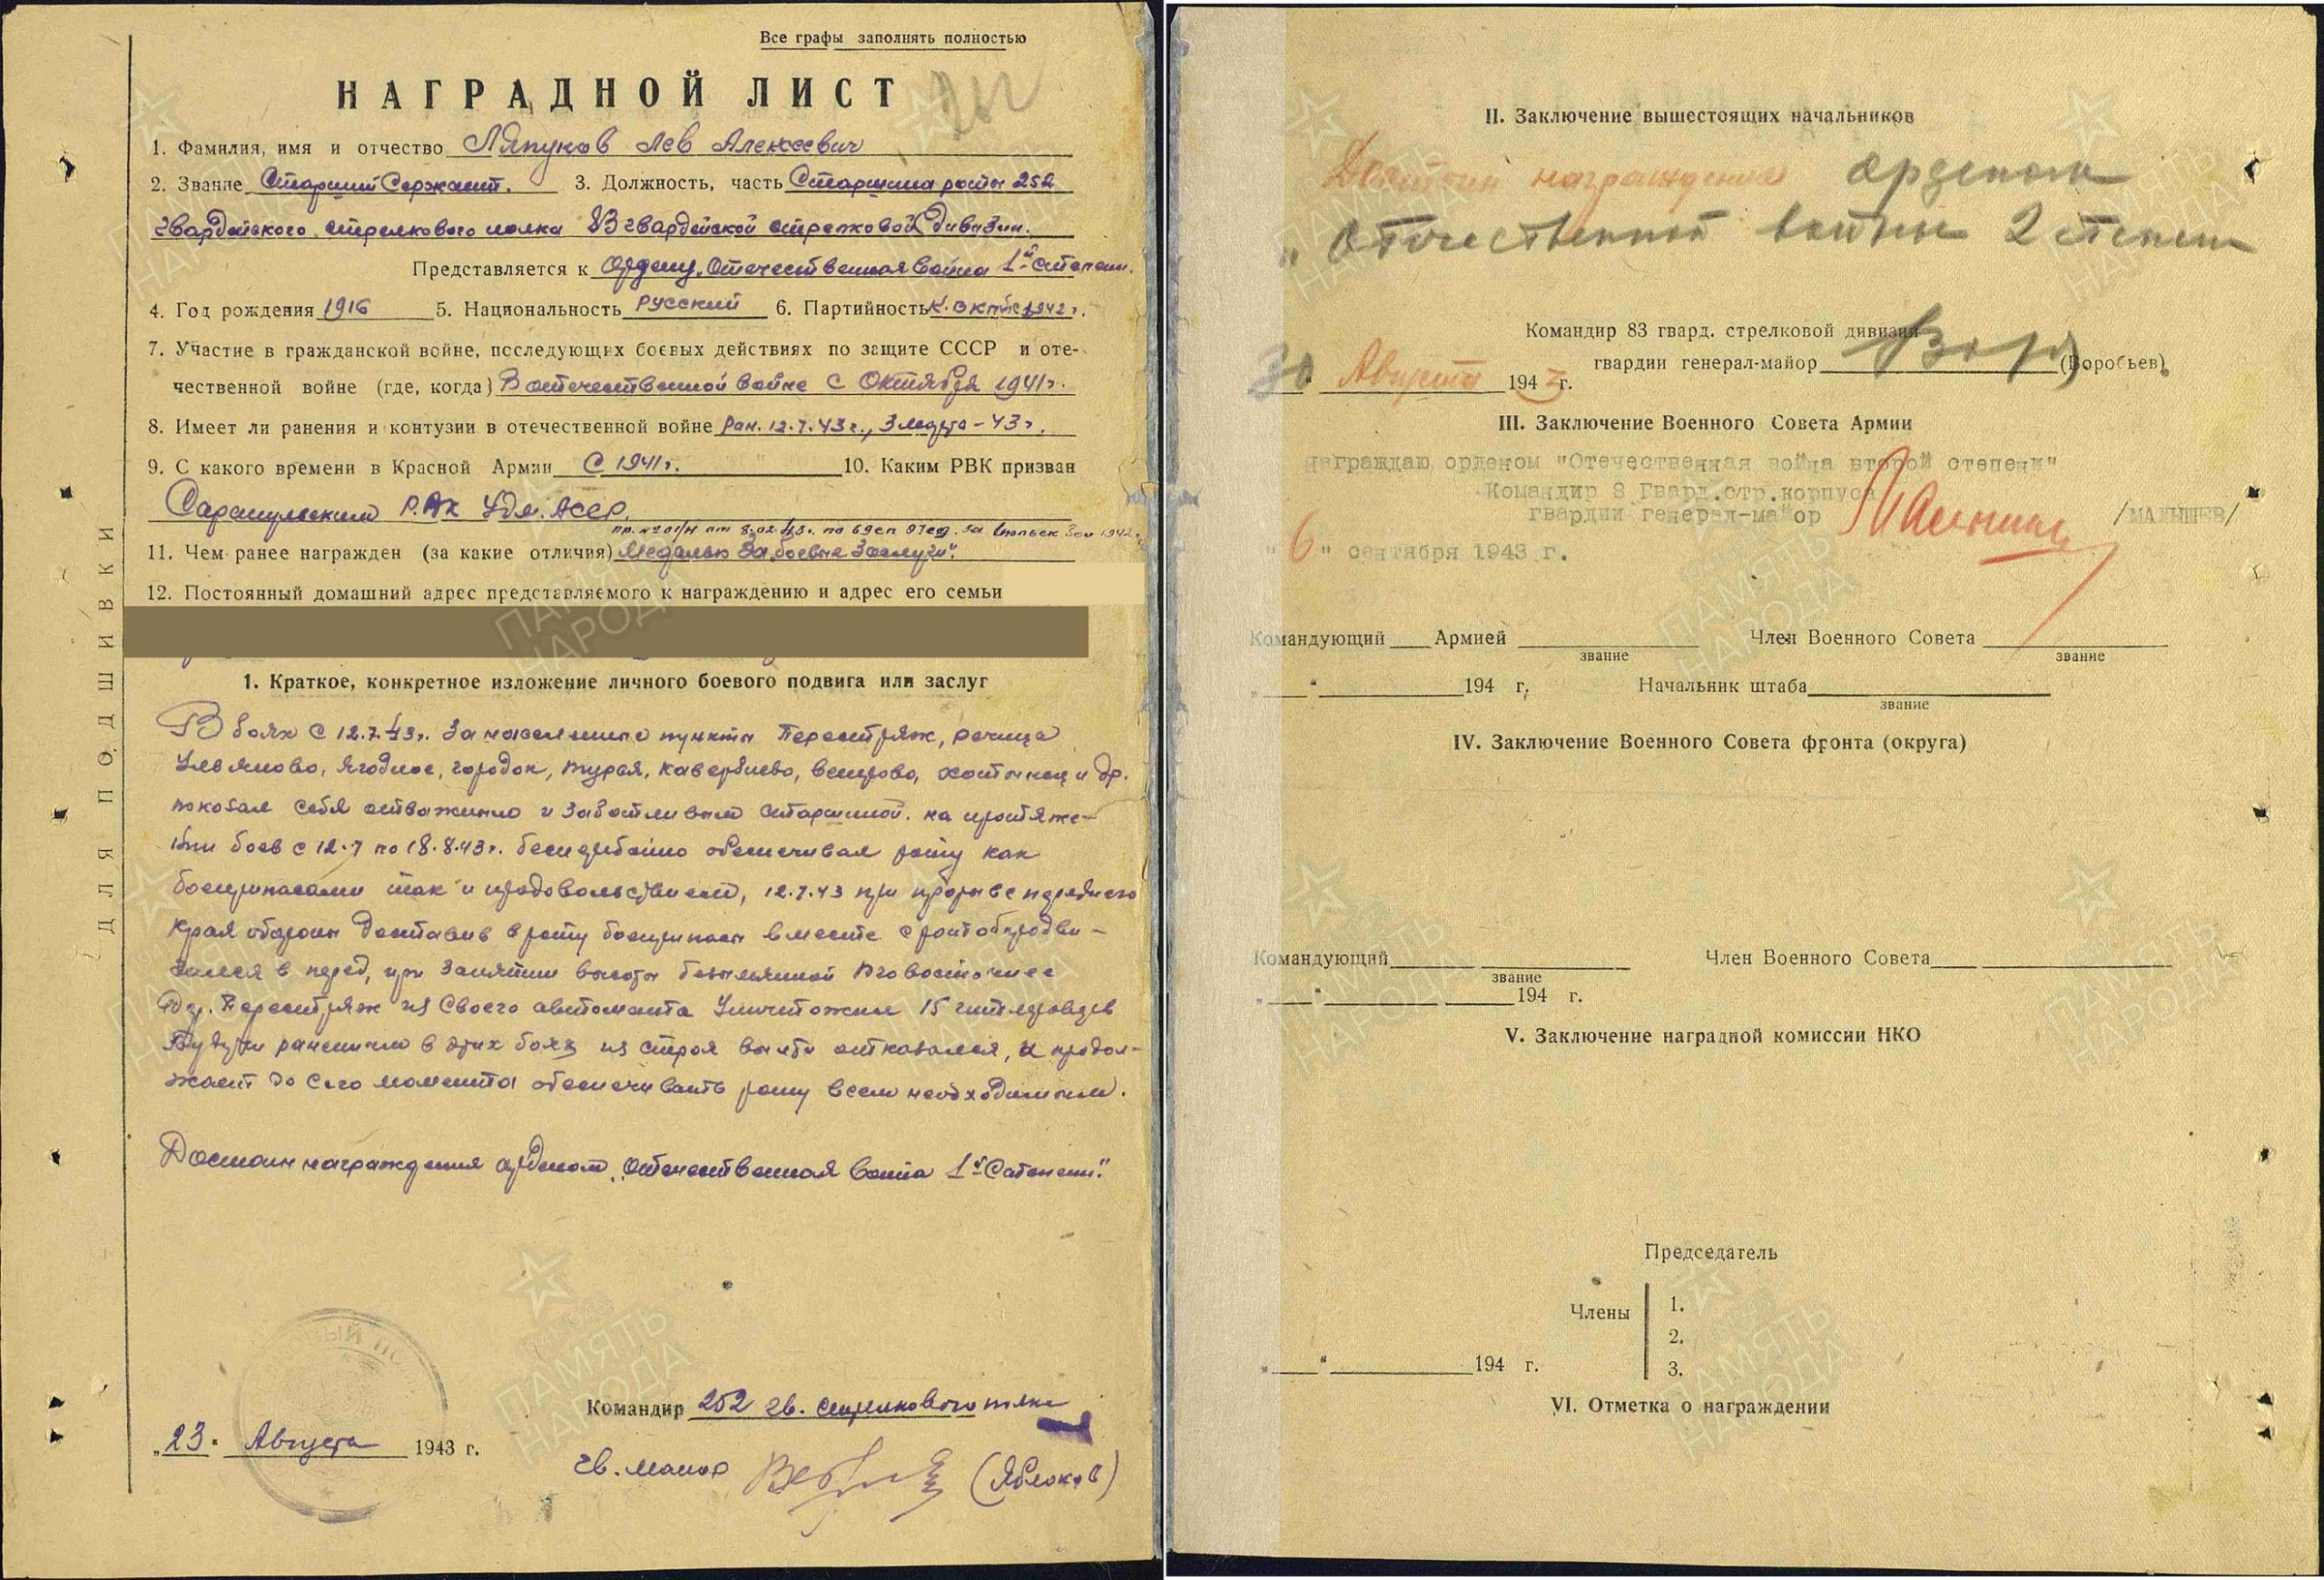 Все графы заполнять полностью
НАГРАДНОЙ ЛИСТ
1. Фамилия, имя и отчество Ляпунов Лев Алексеевич
2. Звание Старший Сержант. 3. Должность, часть Старшина роты 252
гвардейского стрелкового полка 83 гвардейской стрелковой дивизии.
Представляется к Ордену „Отечественная война 1й степени.
4. Год рождения 1916 5. Национальность русский 6. Партийность 1942 г.
7. Участие в гражданской войне, последующих боевых действиях по защите СССР и оте-
чественной войне (где, когда) В отечественной войне с Октября 1941 г.
8. Имеет ли ранения и контузии в отечественной войне ран. 12.7.43 г., 3 марта-43 г.
9. С какого времени в Красной Армии С 1941 г. 10. Каким РВК призван
Сарапульским Удм. АССР.
пр. № 01/н от 8.02.43 г. по за 1942 г.
11. Чем ранее награжден (за какие отличия) Медалью „За боевые Заслуги".
12. Постоянный домашний адрес представляемого к награждению и адрес его семьи
1. Краткое, конкретное изложение личного боевого подвига или заслуг
В боях с 12.7.43 г. за населенные пункты Перестряж, речица
Ульяново, Ягодное, городок, и др.
показал себя отважным и заботливым старшиной. на протяже-
нии боев с 12.7 по 18.8.43 г. бесперебойно обеспечивал роту как
боеприпасами так и продовольствием, 12.7.43 при прорыве переднего
края обороны доставив в роту боеприпасы вместе с ротой продви-
гался в перед, при занятии высоты безымянной юговосточнее
дер. Перестряж из своего автомата уничтожил 15 гитлеровцев
Будучи раненным в этих боях из строя выйти отказался, и продол-
жает до сего момента обеспечивать роту всем необходимым.
Достоин награждения орденом „Отечественная война 1й Степени".
ДЛЯ ПОДШИВКИ
Командир 252 гв. стрелкового полка
„23" Августа 1943 г.
гв. майор (Яблоков)
II. Заключение вышестоящих начальников
Достоин награждения орденом
„Отечественной войны 2 степени
Командир 83 гвард. стрелковой дивизии
гвардии генерал-майор (Воробьев)
30 Августа 1943 г.
III. Заключение Военного Совета Армии
Награждаю орденом "Отечественная война второй степени"
Командир 8 Гвард.стр.корпуса
гвардии генерал-майор /МАЛЫШЕВ/
"6" сентября 1943 г.
Командующий Армией Член Военного Совета
звание звание
„ " 194 г. Начальник штаба
звание
IV. Заключение Военного Совета фронта (округа)
Командующий Член Военного Совета
звание
„ " 194 г.
V. Заключение наградной комиссии НКО
Председатель
Члены 1.
2.
3.
„ " 194 г.
VI. Отметка о награждении
ПАМЯТЬ НАРОДА